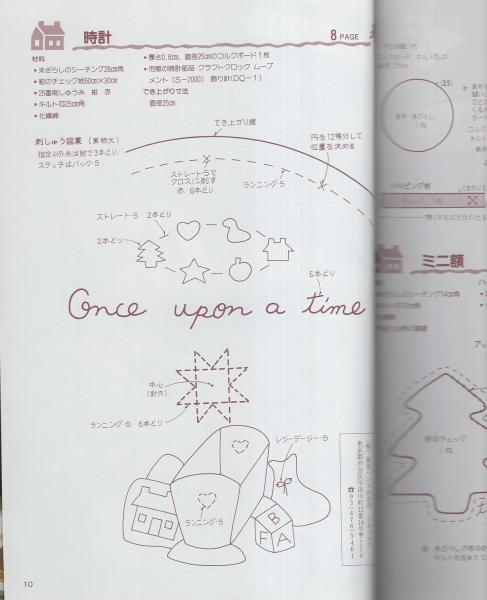 時計
8 PAGE
材料
• 未ざらしのシーチング28cm角
• 紺のチェック地50cm×30cm
• 25番刺しゅう糸 紺 赤
• キルト芯25cm角
• 化繊綿
• 厚さ0.6cm、直径25cmのコルクボード1枚
• 市販の時計部品 クラフトクロック ムーブ
メント(S-2000) 飾り針(DQ-1)
でき上がり寸法
直径25cm
刺しゅう図案(実物大)
指定以外糸は紺で3本どり、
ステッチはバック・S
でき上がり線
円を12等分して
位置を決める
ストレート・Sで
クロスに刺す
赤 6本どり
ランニング・S
ストレート・S 2本どり
2本どり
6本どり
Once upon a time
中心
(針穴)
ランニング・S 6本どり
レジーデージー・S
ランニング・S
B
F A
10
(35)
1枚
チェック 1枚
ミニ額
シーチング14cm角
紺のチェック
1枚